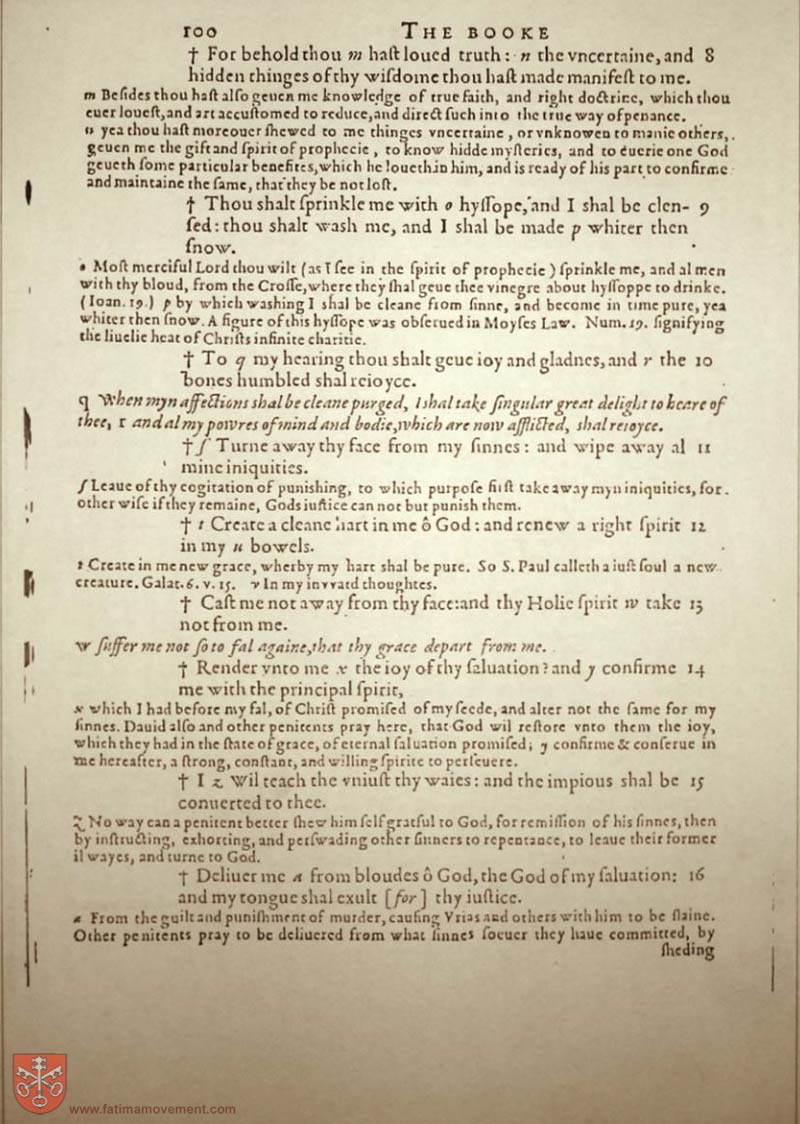 100 THE BOOKE
† For behold thou m haſt loued truth: n the vncertaine, and 8
hidden thinges of thy wiſdome thou haſt made manifeſt to me.
m Beſides thou haſt alſo geuen me knowledge of true faith, and right doctrine, which thou
euer loueſt, and art accuſtomed to reduce, and direct ſuch into the true way of penance.
n yea thou haſt moreouer ſhewed to me thinges vncertaine, or vnknowen to manie others,
geuen me the gift and ſpirit of prophecie, to know hidde myſteries, and to euerie one God
geueth ſome particular benefites, which he loueth in him, and is ready of his part to confirme
and maintaine the ſame, that they be not loſt.
† Thou ſhalt ſprinkle me with o hyſſope, and I shal be clen- 9
ſed: thou shalt wash me, and I shal be made p whiter then
ſnow.
o Moſt merciful Lord thou wilt (as I ſee in the ſpirit of prophecie) ſprinkle me, and al men
with thy bloud, from the Croſſe, where they ſhal geue thee vinegre about hyſſoppe to drinke.
(Ioan. 19.) p by which washing I shal be cleane from ſinne, and become in time pure, yea
whiter then ſnow. A figure of this hyſſope was obſerued in Moyſes Law. Num. 19. ſignifying
the liuelie heat of Chriſts infinite charitie.
† To q my hearing thou shalt geue ioy and gladnes, and r the 10
bones humbled shal reioyce.
q When myn affections shal be cleane purged, I shal take ſingular great delight to heare of
thee, r and al my powres of mind and bodie, which are now afflicted, shal reioyce.
† ſ Turne away thy face from my ſinnes: and wipe away al 11
mine iniquities.
ſ Leaue of thy cogitation of punishing, to which purpoſe firſt take away myn iniquities, for
other wiſe if they remaine, Gods iuſtice can not but punish them.
† t Create a cleane hart in me ô God: and renew a right ſpirit 12
in my u bowels.
t Create in me new grace, wherby my hart shal be pure. So S. Paul calleth a iuſt ſoul a new
creature. Galat. 6. v. 15. v In my inward thoughtes.
† Caſt me not away from thy face: and thy Holie ſpirit w take 13
not from me.
w ſuffer me not ſo to fal againe, that thy grace depart from me.
† Render vnto me x the ioy of thy ſaluation? and y confirme 14
me with the principal ſpirit,
x which I had before my fal, of Chriſt promiſed of my ſeede, and alter not the ſame for my
ſinnes. Dauid alſo and other penitents pray here, that God wil reſtore vnto them the ioy,
which they had in the ſtate of grace, of eternal ſaluation promiſed; y confirme & conſerue in
me hereafter, a ſtrong, conſtant, and willing ſpirite to perſeuere.
† I z Wil teach the vniuſt thy waies: and the impious shal be 15
conuerted to thee.
z No way can a penitent better ſhew him ſelf grateful to God, for remiſſion of his ſinnes, then
by inſtructing, exhorting, and perſwading other ſinners to repentance, to leaue their former
il wayes, and turne to God.
† Deliuer me a from bloudes ô God, the God of my ſaluation: 16
and my tongue shal exult [for] thy iuſtice.
a From the guilt and puniſhment of murder, cauſing Vrias and others with him to be ſlaine.
Other penitents pray to be deliuered from what ſinnes ſoeuer they haue committed, by
ſheding
www.fatimamovement.com